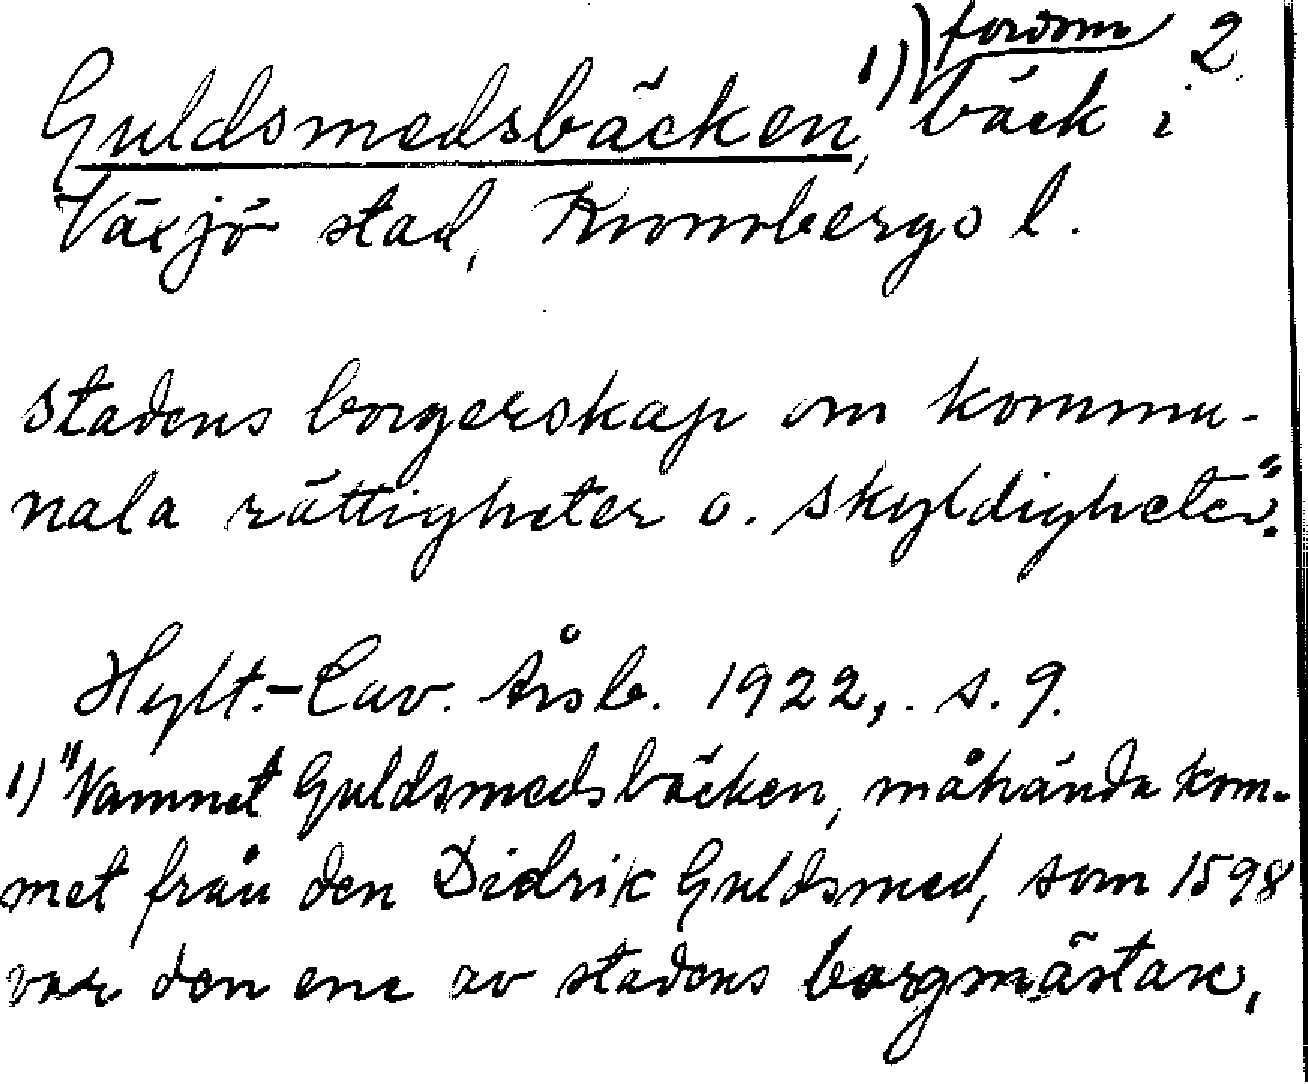 fordom 2
Guldsmedsbäcken,1) bäck i
Växjö stad, Kronobergs l.
stadens borgerskap om kommu-
nala rättigheter o. skyldigheter".
Hylt.-Cav. Årsb. 1922, s. 9.
1) "Namnet Guldsmedsbäcken, måhända kom-
met från den Didrik Guldsmed, som 1598
var den ene av stadens borgmästare,